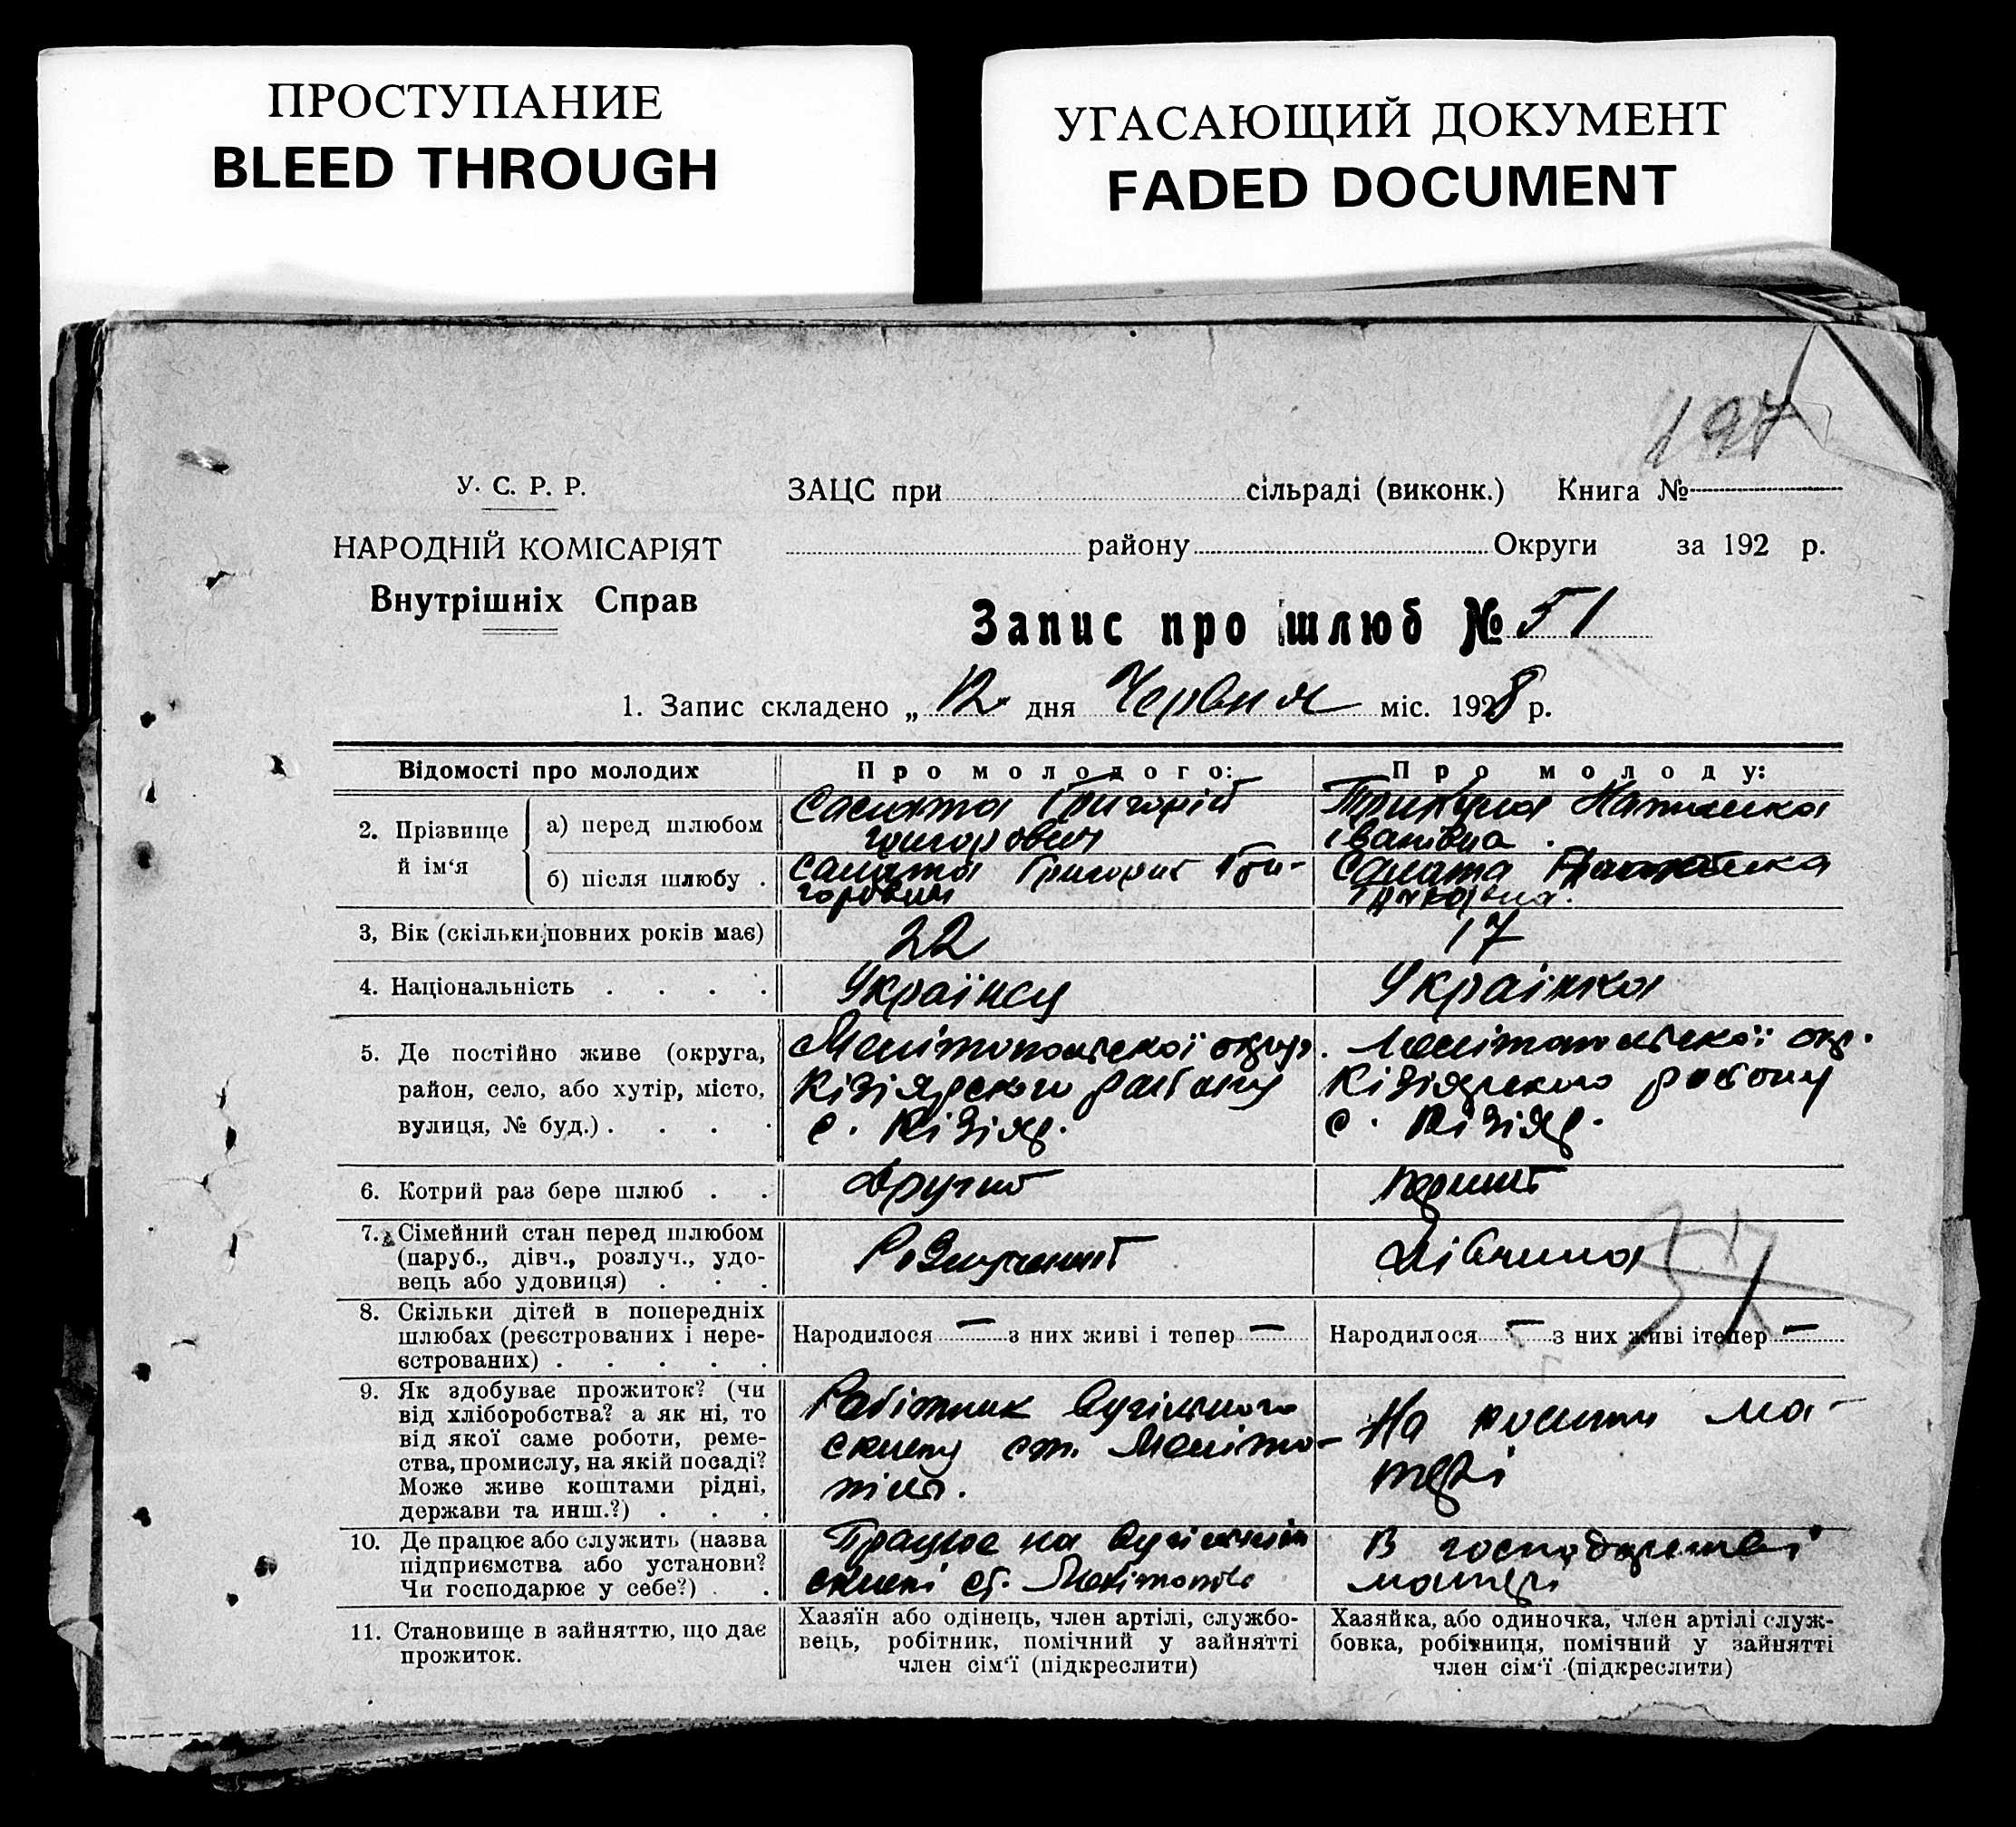 ПРОСТУПАНИЕ
BLEED THROUGH
УГАСАЮЩИЙ ДОКУМЕНТ
FADED DOCUMENT
197
У. С. Р. Р.
НАРОДНІЙ КОМІСАРІЯТ
Внутрішніх Справ
ЗАЦС при сільраді (виконк.) Книга №
району Округи за 192 р.
Запис про шлюб № 51
1. Запис складено „ 12 дня Червня міс. 1928 р.
Відомості про молодих
Про молодого:
Про молоду:
2. Прізвище й ім‘я
а) перед шлюбом
Салата Григорій
Григорович
Наталка
Іванівна.
б) після шлюбу .
Салата Григорий Гри-
горович
Салата
3, Вік (скільки повних років має)
22
17
4. Національність . . . .
Українец
Українка
5. Де постійно живе (округа,
район, село, або хутір, місто,
вулиця, № буд.) . . . .
Мелітопольскої округ.
Кізіярского района
с. Кізіяр.
Мелітопольскої окр.
Кізіярского району
с. Кізіяр.
6. Котрий раз бере шлюб . .
Другий
Перший
7. Сімейний стан перед шлюбом
(паруб., дівч., розлуч., удо-
вець або удовиця) . . .
Розлучений
Дівчина
51
8. Скільки дітей в попередніх
шлюбах (реєстрованих і нере-
єстрованих) . . . . .
Народилося — з них живі і тепер —
Народилося — з них живі ітепер —
9. Як здобуває прожиток? (чи
від хліборобства? а як ні, то
від якої саме роботи, реме-
ства, промислу, на якій посаді?
Може живе коштами рідні,
держави та инш.?) . . .
Робітник Вугільного
складу ст. Меліто-
піль.
На кошти ма-
тері
10. Де працює або служить (назва
підприємства або установи?
Чи господарює у себе?) . .
Працює на Вугільнім
складі ст.
В господарстві
матері
11. Становище в зайняттю, що дає
прожиток.
Хазяїн або одінець, член артілі, службо-
вець, робітник, помічний у зайнятті
член сім‘ї (підкреслити)
Хазяйка, або одиночка, член артілі служ-
бовка, робітниця, помічний у зайнятті
член сім‘ї (підкреслити)